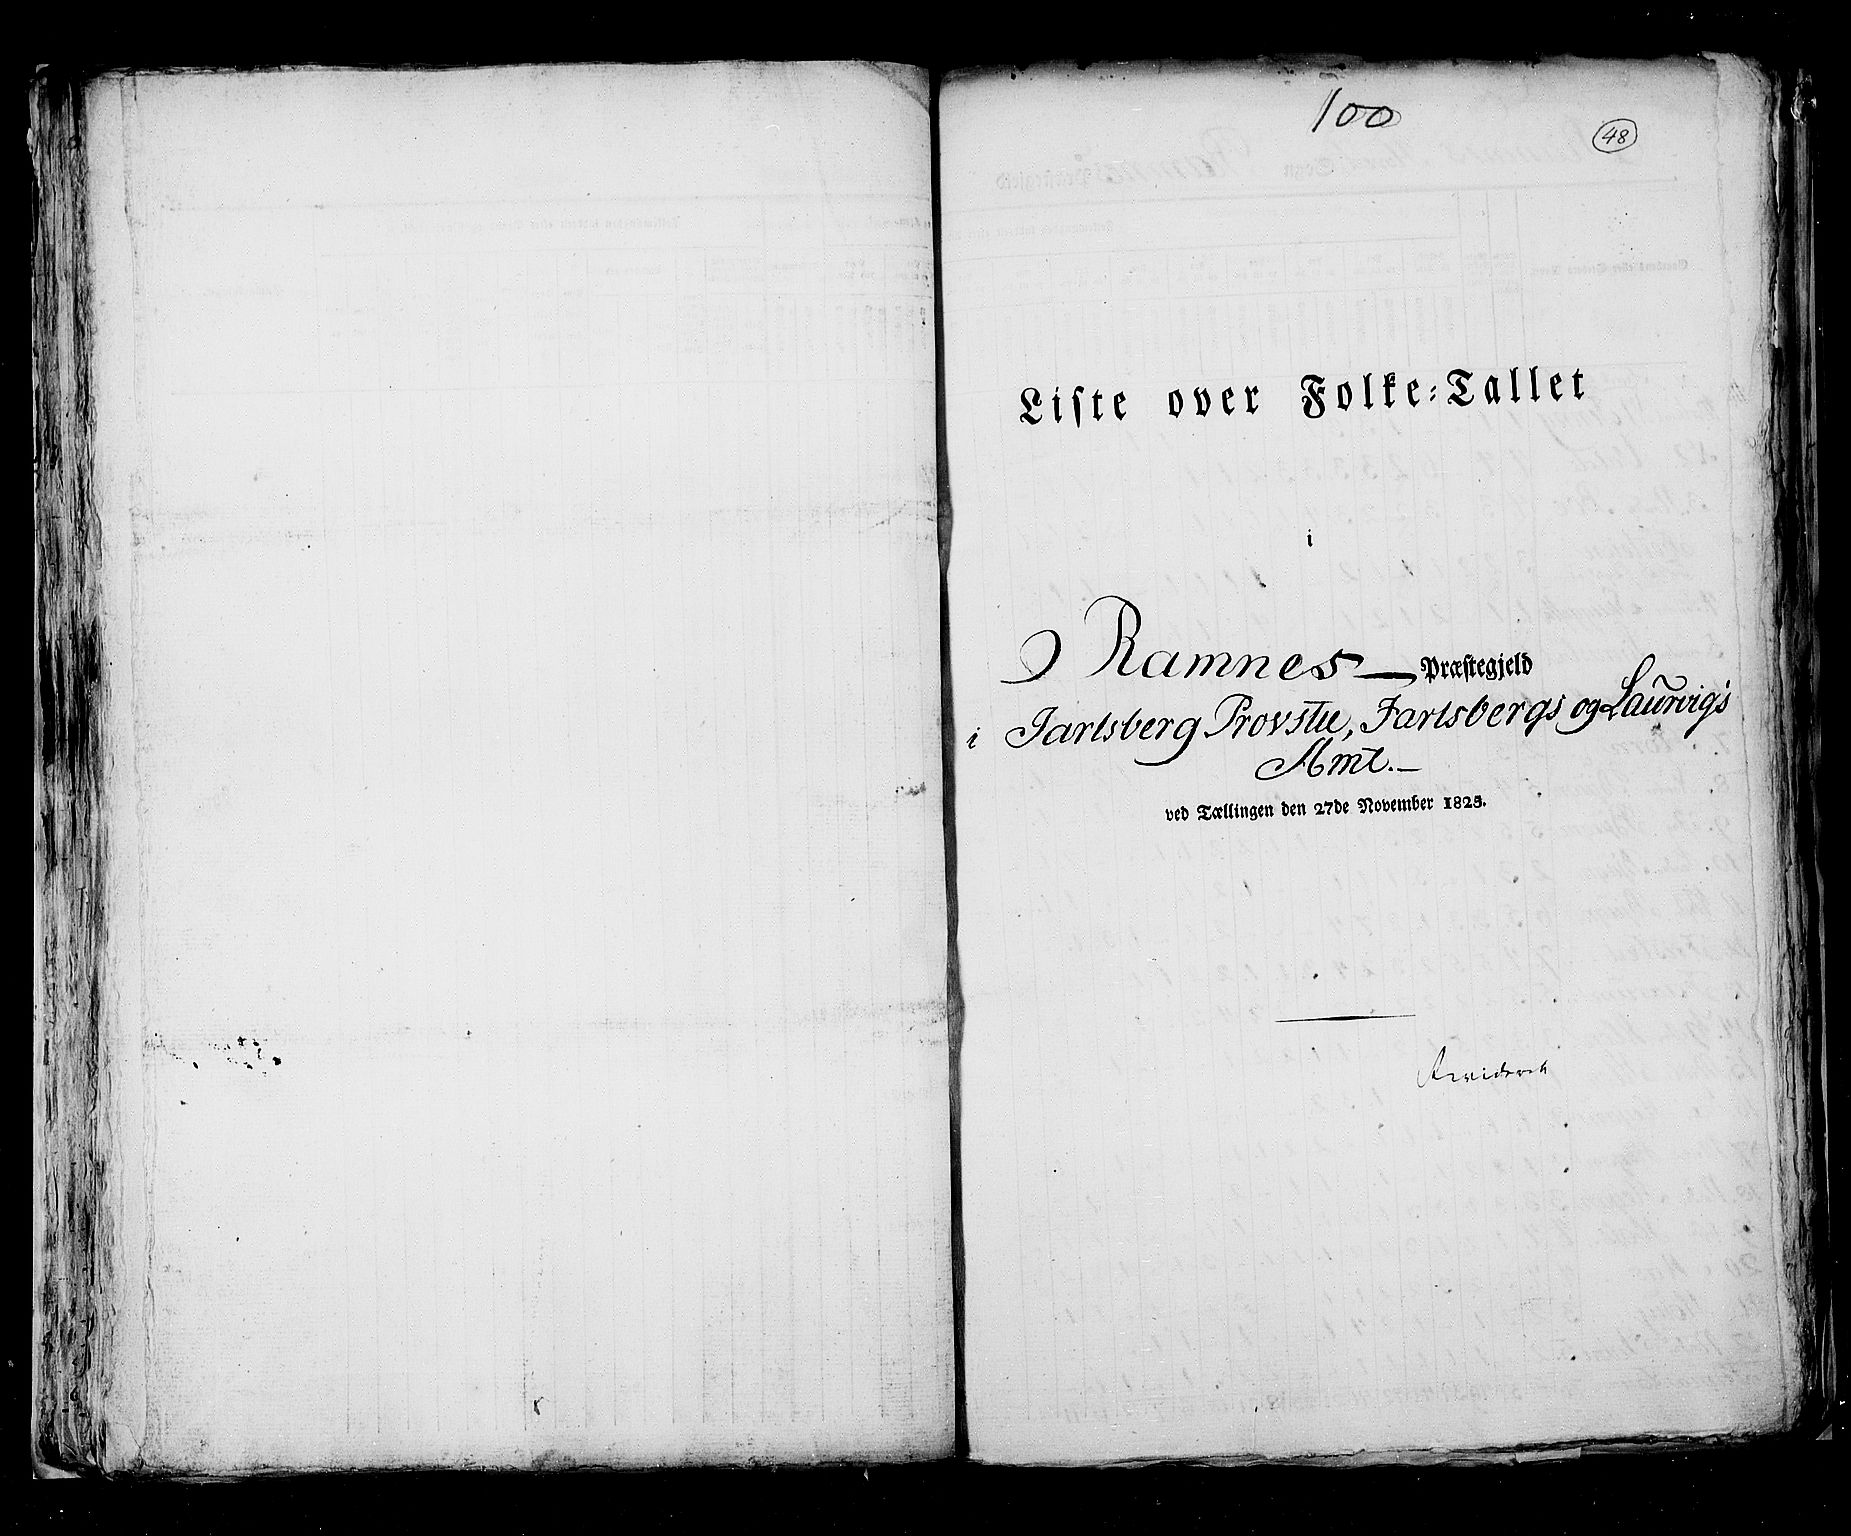 100
48
Liste over Folke-Tallet
i
Ramnes Præstegjeld
i Jarlsberg Provstie, Jarlsbergs og Laurvigs
Amt.
ved Tællingen den 27de November 1825.
Revideret